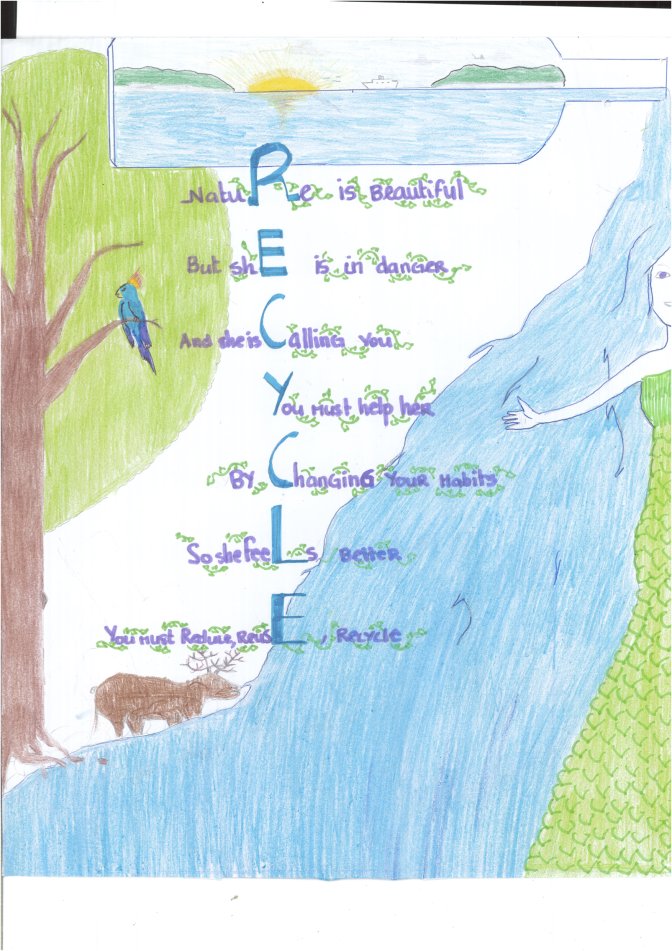 NatuRe is Beautiful
But shE is in danger
And she is Calling You
You must help her
By Changing Your Habits
So she feeLs Better
You must Reduce, ReusE, Recycle